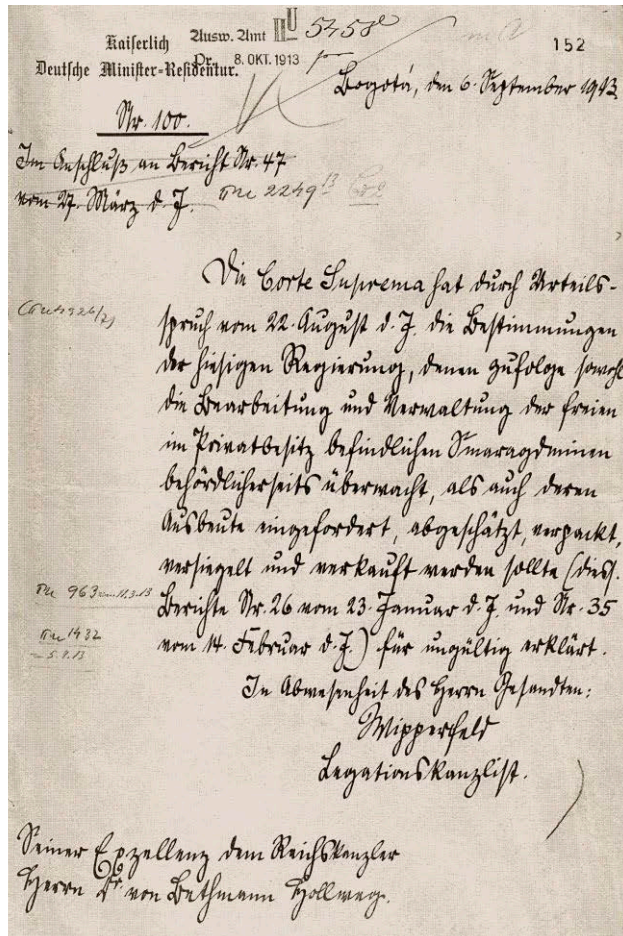 Kaiserlich
Deutsche Minister-Residentur.
Ausw. Amt II U 5458
Pr. 8. OKT. 1913
152
Bogotá, den 6. September 1913.
Nr. 100.
Im Anschluß an Bericht Nr. 47
vom 27. März d. J.
2249 13
Die Corte Suprema hat durch Urteils-
spruch vom 22. August d. J. die Bestimmungen
der hiesigen Regierung, denen zufolge sowohl
die Bearbeitung und Verwaltung der freien
im Privatbesitz befindlichen Smaragdminen
behördlicherseits überwacht, als auch deren
Ausbeute eingefordert, abgeschätzt, verpackt,
versiegelt und verkauft werden sollte (diess.
963
Berichte Nr. 26 vom 23. Januar d. J. und Nr. 35
1432
vom 14. Februar d. J.) für ungültig erklärt.
In Abwesenheit des Herrn Gesandten:
Wipperfeld
Legationskanzlist.
Seiner Exzellenz dem Reichskanzler
Herrn Dr. von Bethmann Hollweg.